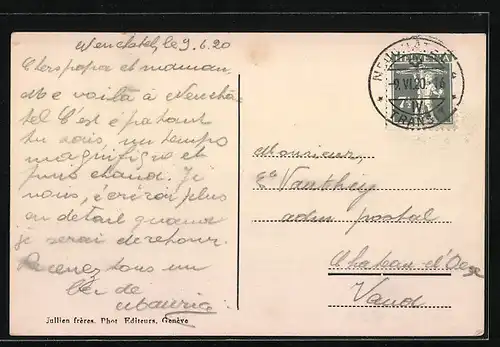 Neuchatel, le 9.6.20
Chers papa et maman,
Me voilà à Neucha-
tel C'est épatant
tu sais, un temps
magnifique et
puis chaud. Je
vous écrirai plus
en detail quand
je serai de retour.
Recevez tous un
de
Maurice
Jullien frères, Phot Editeurs, Genève
NEUCHÂTEL
9.VI.20
IV
TRANS.
HELVETIA
Monsieur,
Vauthey
adm postal
Chateau-d'Oex
Vaud